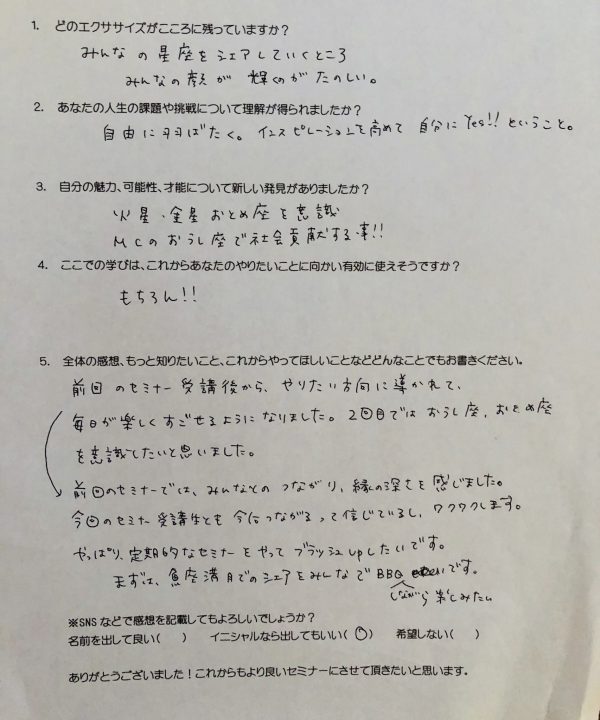 1. どのエクササイズがこころに残っていますか？
みんなの星座をシェアしていくところ
みんなの顔が輝くのがたのしい。
2. あなたの人生の課題や挑戦について理解が得られましたか？
自由に羽ばたく。インスピレーションを高めて 自分にYes!!ということ。
3. 自分の魅力、可能性、才能について新しい発見がありましたか？
火星・金星 おとめ座を意識
MCのおうし座で社会貢献する事!!
4. ここでの学びは、これからあなたのやりたいことに向かい有効に使えそうですか？
もちろん!!
5. 全体の感想、もっと知りたいこと、これからやってほしいことなどどんなことでもお書きください。
前回のセミナー受講後から、やりたい方向に導かれて、
毎日が楽しくすごせるようになりました。2回目では おうし座、おとめ座
を意識したいと思いました。
前回のセミナーでは、みんなとのつながり、縁の深さを感じました。
今回のセミナー受講生とも今后つながるって信じているし、ワクワクします。
やっぱり、定期的なセミナーをやってブラッシュupしたいです。
まずは、魚座満月でのシェアをみんなでBBQ いです。
しながら楽しみたい
※SNSなどで感想を記載してもよろしいでしょうか？
名前を出して良い(　) イニシャルなら出してもいい(○) 希望しない(　)
ありがとうございました！これからもより良いセミナーにさせて頂きたいと思います。